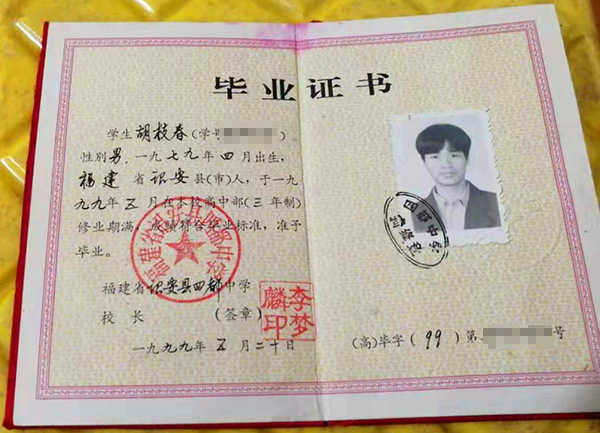 毕业证书
学生胡枝春(学号      ).
性别男.一九七九年四月出生,
福建省诏安县(市)人,于一九
九九年五月在本校高中部(三年制)
修业期满,成绩符合毕业标准,准予
毕业。
福建省诏安县四都中学
校长 (签章)
李梦麟印
一九九九年五月二十日
福建省诏安县四都中学
诏安县四都中学
(高)毕字(99)第      号